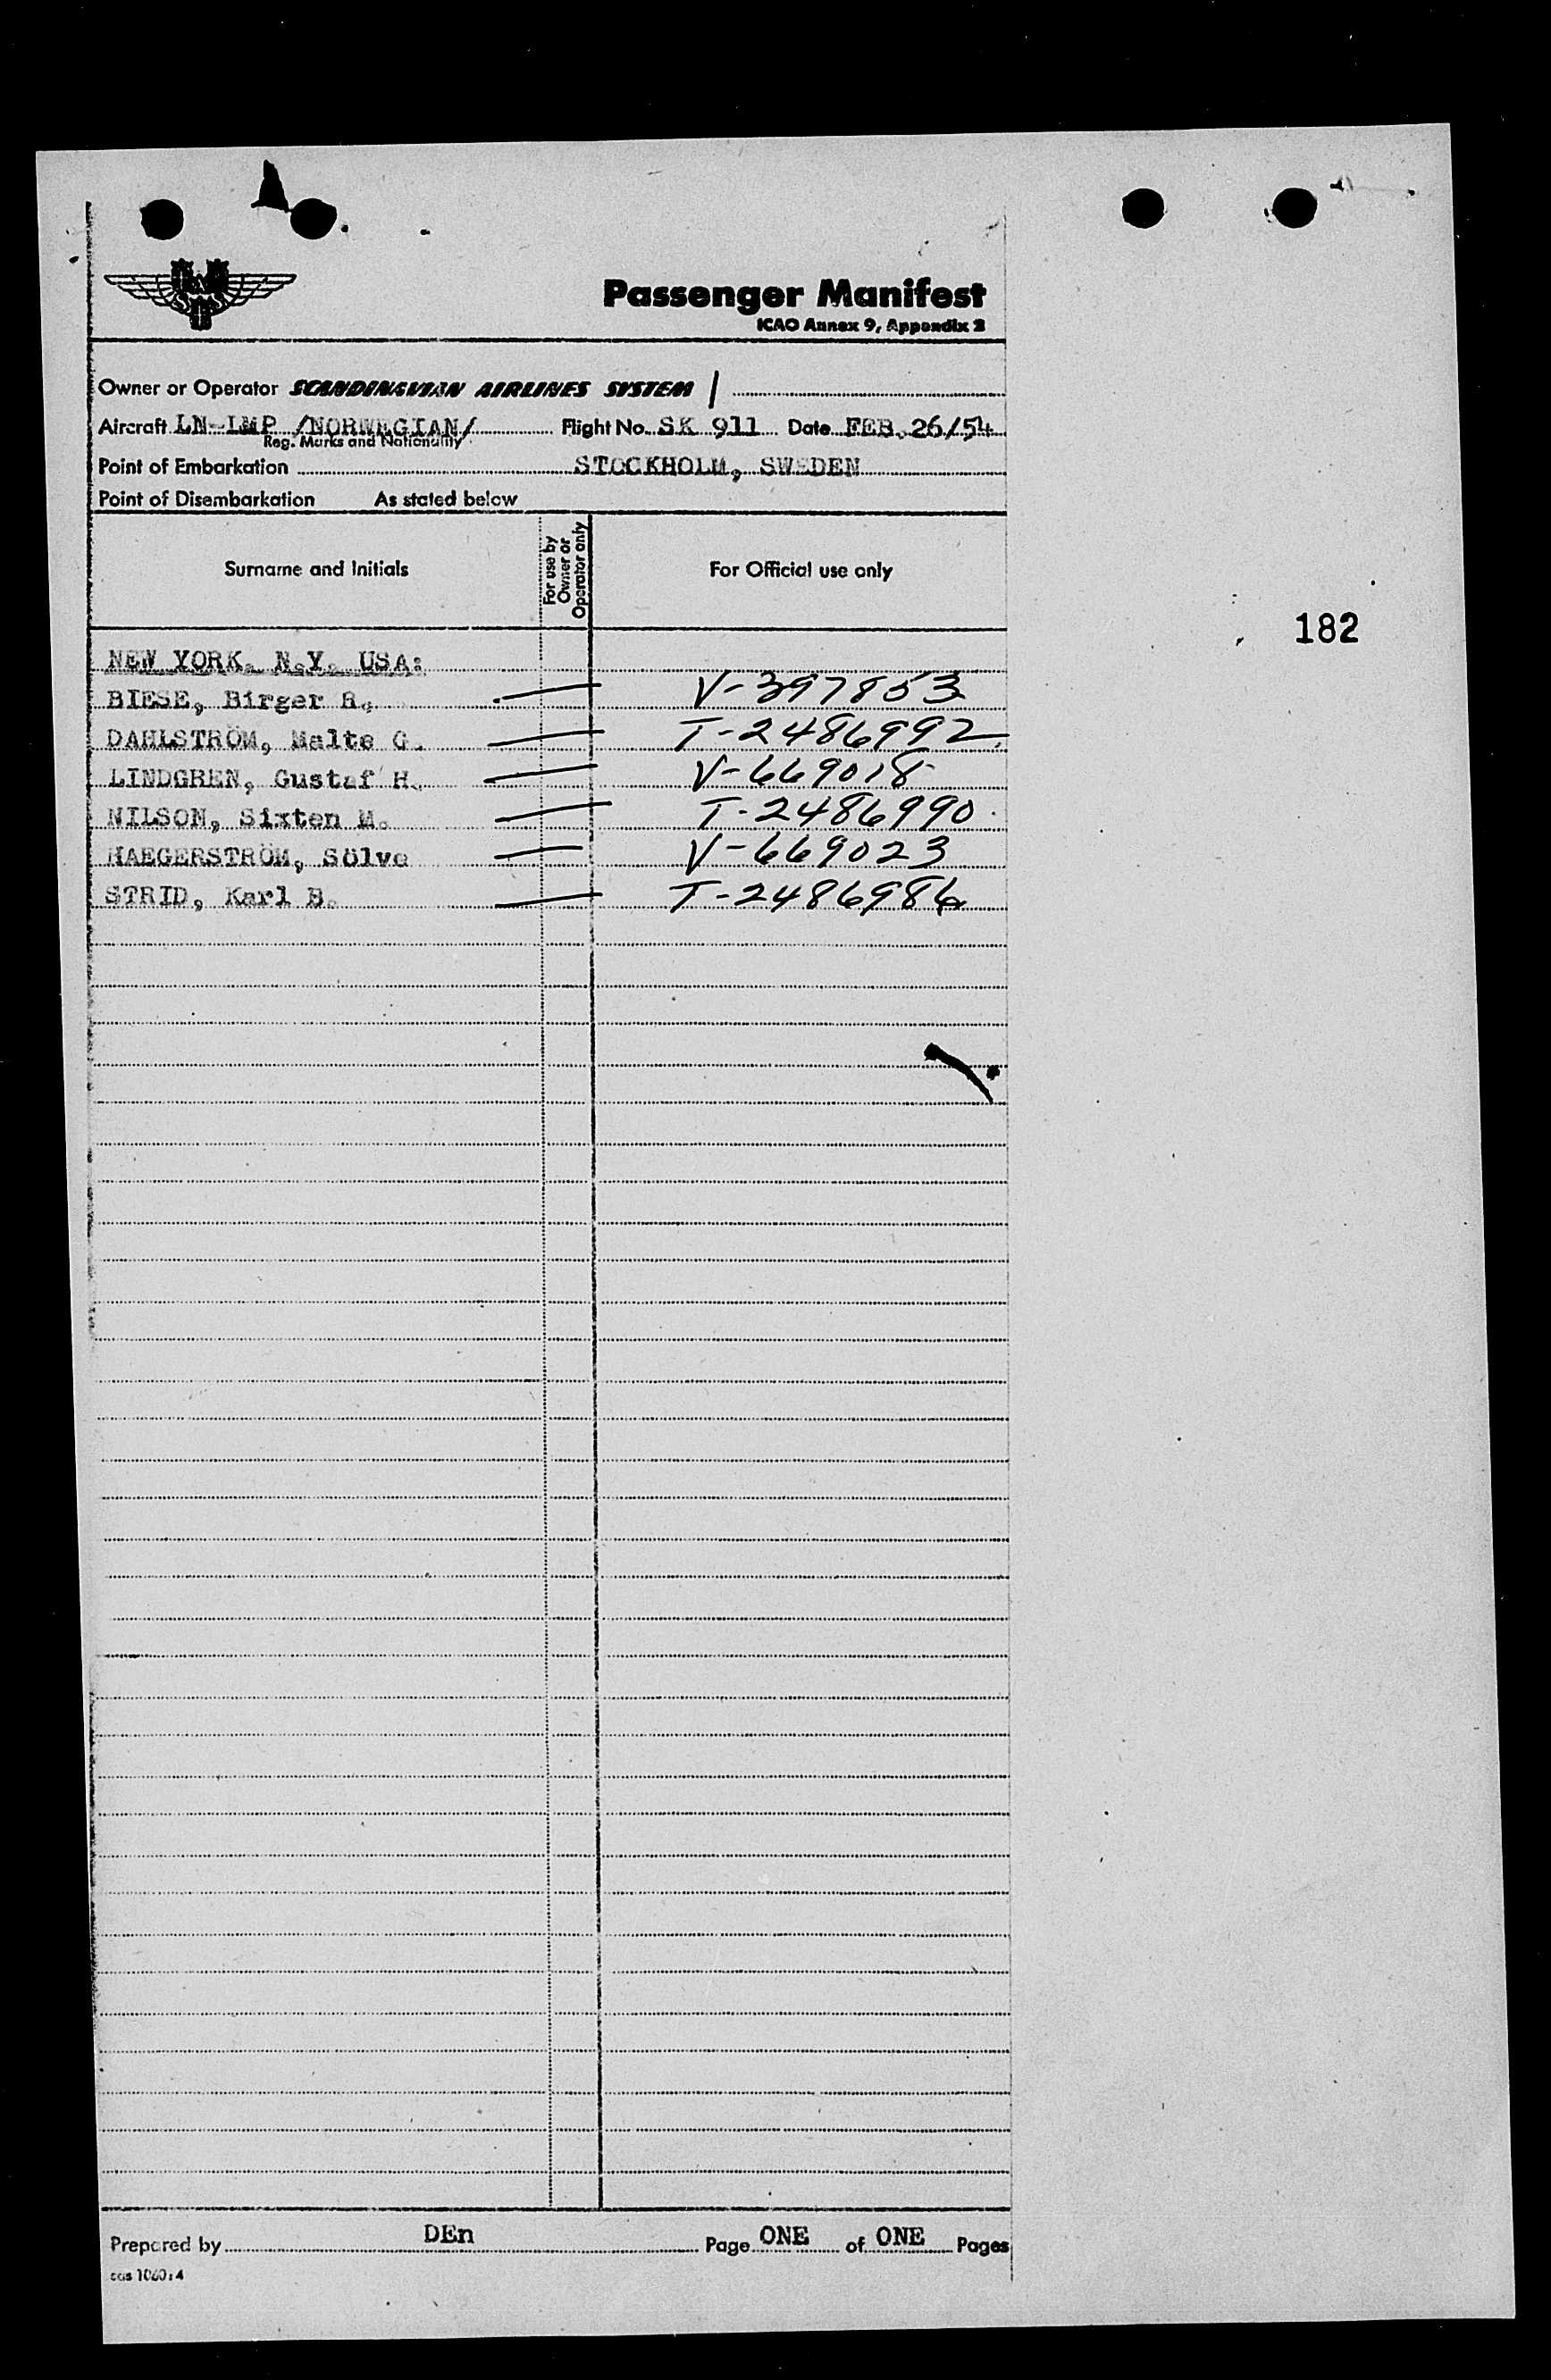 Passenger Manifest
ICAO Annex 9, Appendix 2
Owner or Operator SCANDINAVIAN AIRLINES SYSTEM
Aircraft LN-LMP /NORWEGIAN/ Flight No. SK 911 Date FEB. 26/54
Reg. Marks and Nationality
Point of Embarkation STOCKHOLM, SWEDEN
Point of Disembarkation As stated below
Surname and Initials For use by Owner or Operator only For Official use only
182
NEW YORK. N.Y. USA:
BIESE, Birger R. V-397853
DAHLSTRÖM, Malte G. T-2486992
LINDGREN, Gustaf H. V-669018
NILSON, Sixten M. T-2486990
HAEGERSTRÖM, Sölve V-669023
STRID, Karl B. T-2486986
Prepared by DEn Page ONE of ONE Pages
sas 1060:4